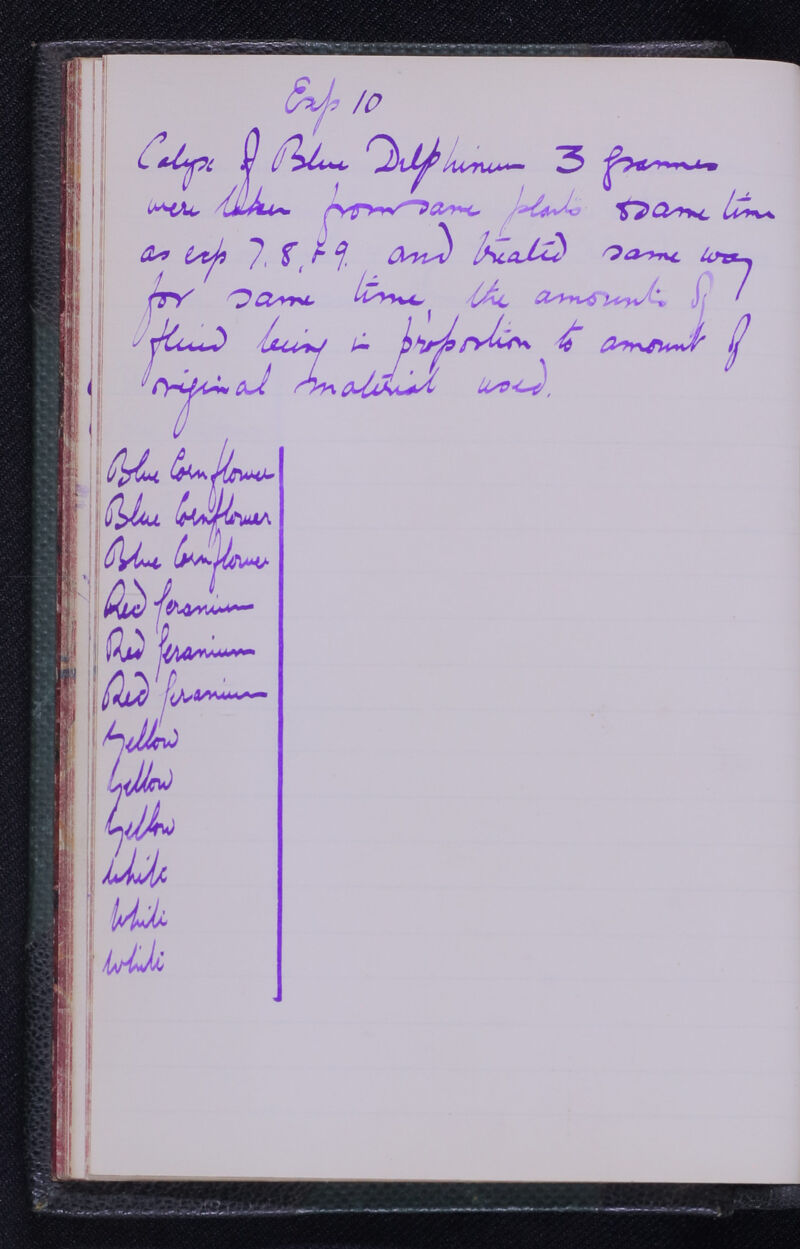 Exp 10
Calyx of Blue Delphinium 3 grammes
were taken from same plants & same time
as exp 7, 8, & 9. and treated same way
for same time, the amounts of
fluid being in proportion to amount of
original material used.
Blue Cornflower
Blue Cornflower
Blue Cornflower
Red Geranium
Red Geranium
Red Geranium
Yellow
Yellow
Yellow
White
White
White